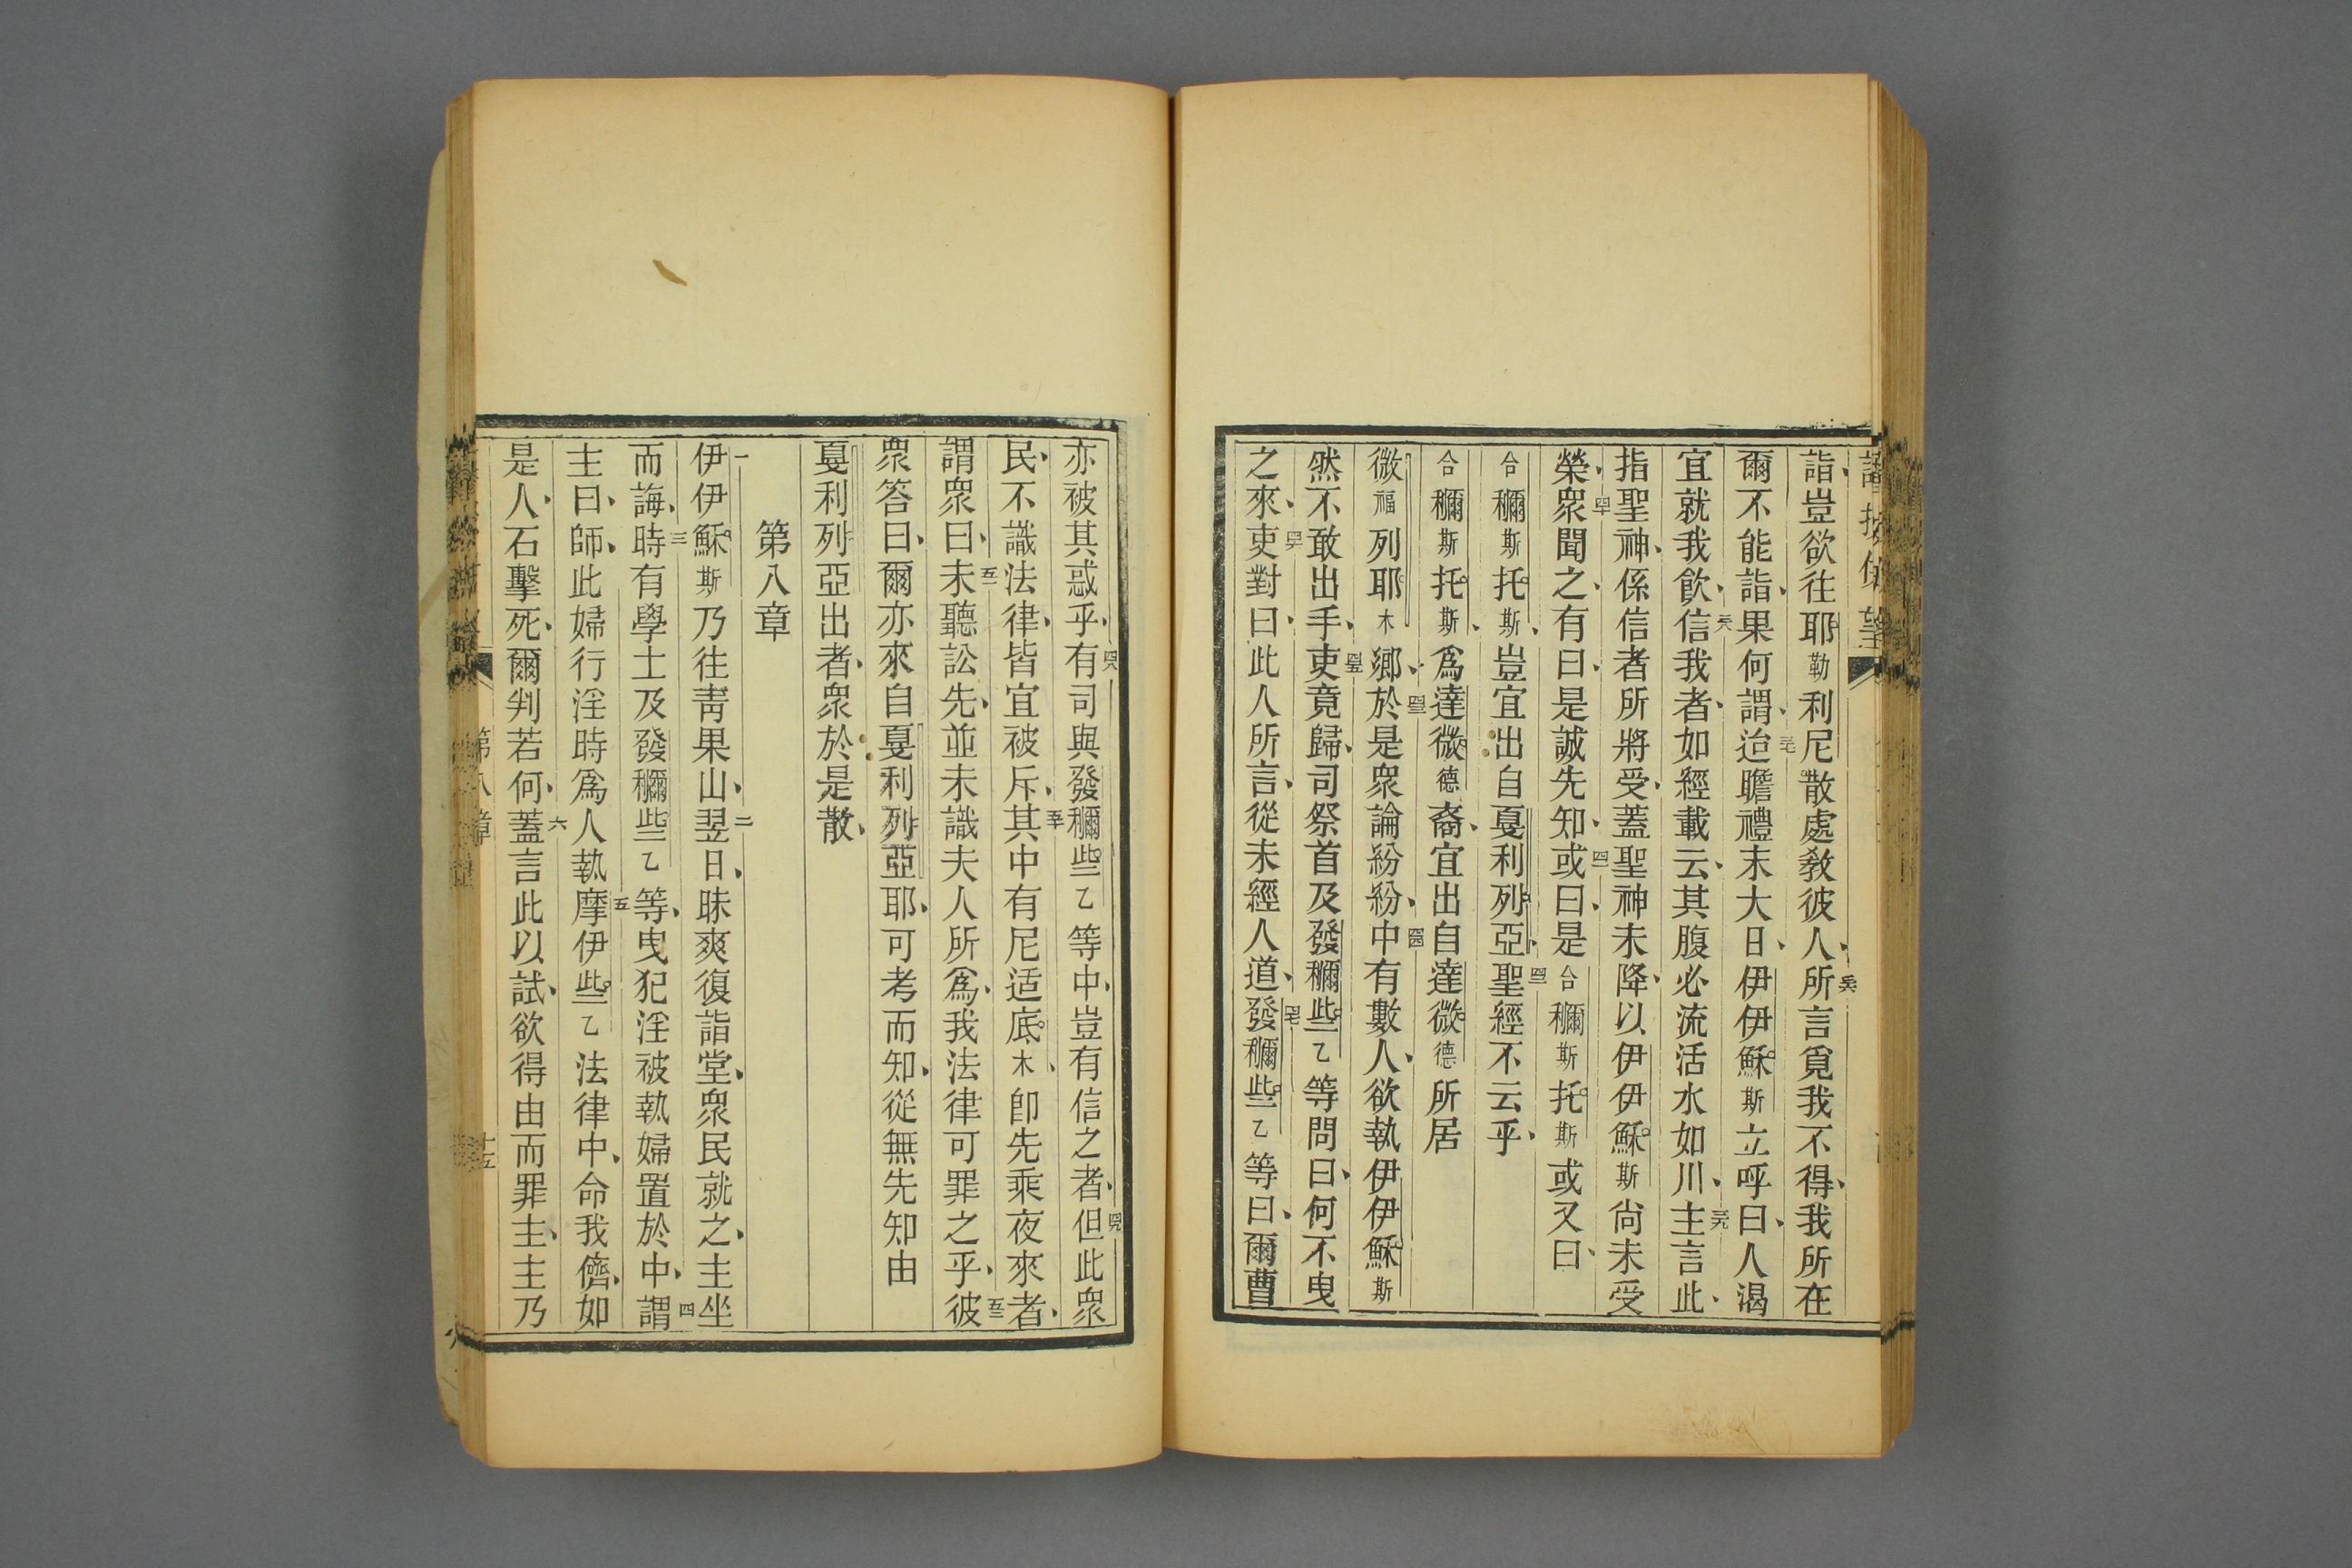 詣、豈欲往耶勒利尼散處敎彼人、所言覓我不得、我所在
爾不能詣、果何謂、迨瞻禮末大日、伊伊穌斯立呼曰、人渴
宜就我飮、信我者、如經載云、其腹必流活水如川、主言此、
指聖神、係信者所將受、蓋聖神未降、以伊伊穌斯尙未受
榮、衆聞之、有曰、是誠先知、或曰、是合穪斯托斯或又曰、
合穪斯托斯、豈宜出自戛利列亞、聖經不云乎、
合穪斯托斯、爲達微德裔、宜出自達微德所居
微福列耶木鄉、於是衆論紛紛、中有數人、欲執伊伊穌斯
然不敢出手、吏竟歸、司祭首及發穪些乙等問曰、何不曳
之來、吏對曰、此人所言、從未經人道、發穪些乙等曰、爾曹
亦被其惑乎、有司與發穪些乙等中、豈有信之者、但此衆
民、不識法律、皆宜被斥、其中有尼适底木、卽先乘夜來者、
謂衆曰、未聽訟先、並未識夫人所爲、我法律可罪之乎、彼
衆答曰、爾亦來自戛利列亞耶、可考而知、從無先知由
戛利列亞出者、衆於是散、
第八章
一伊伊穌斯乃往靑果山、二翌日、昧爽復詣堂、衆民就之、主坐
而誨、三時有學士及發穪些乙等、曳犯淫被執婦置於中、四謂
主曰、師、此婦行淫時爲人執、五摩伊些乙法律中、命我儕、如
是人、石擊死、爾判若何、六蓋言此以試、欲得由而罪主、主乃
第八章
十五